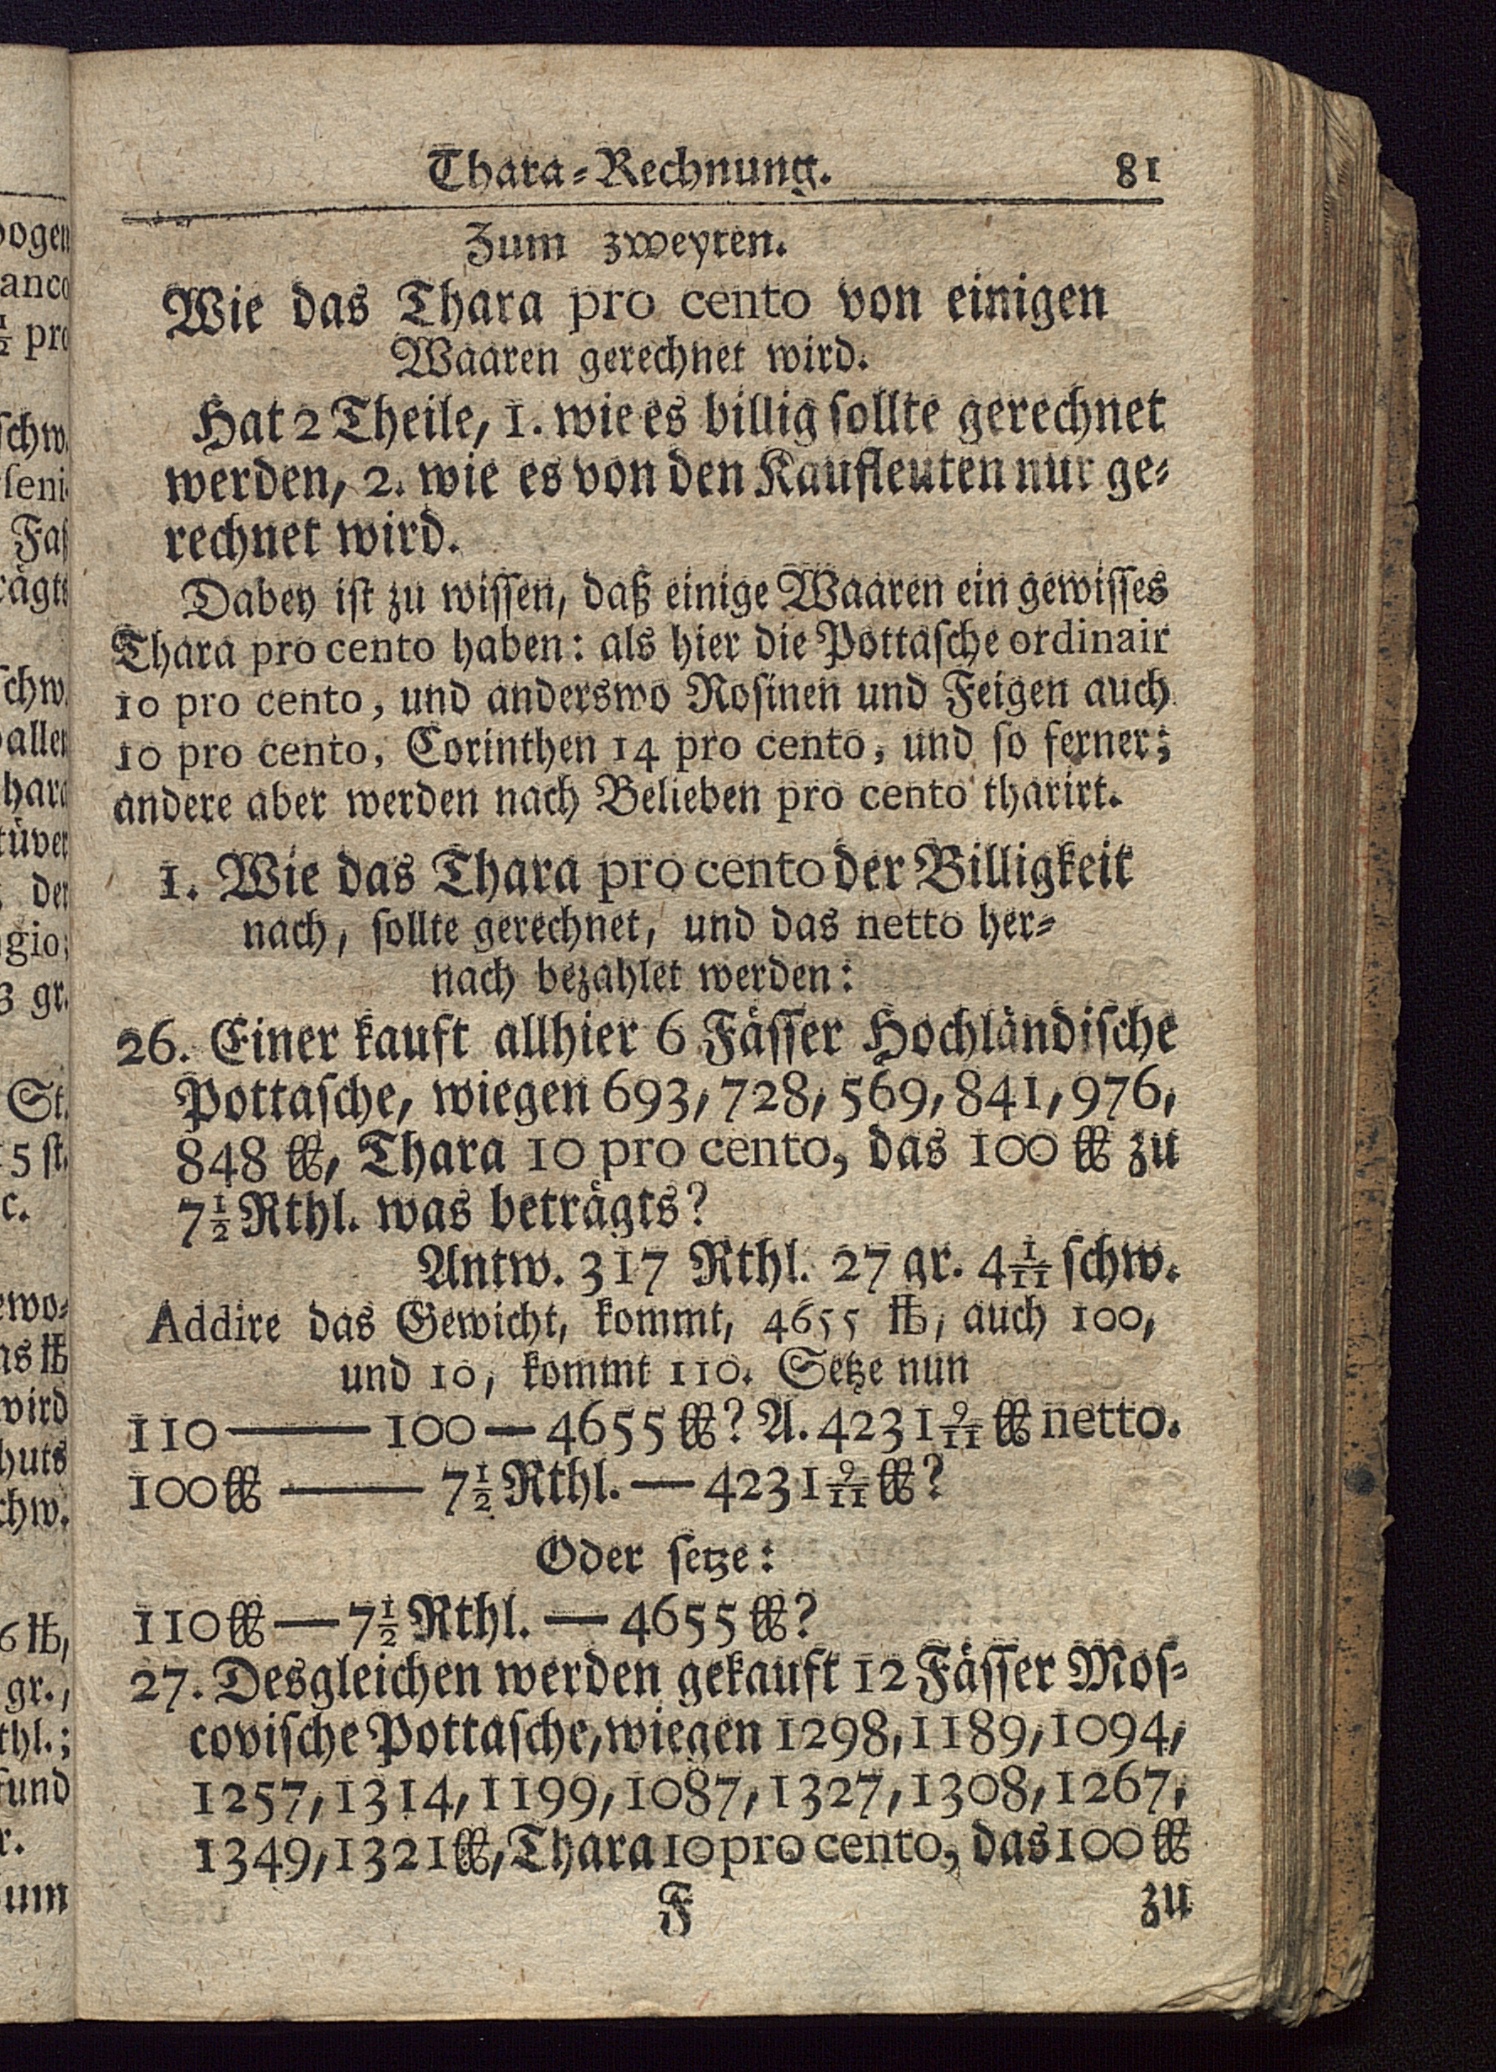 Thara-Rechnung. 81
Zum zweyten.
Wie das Thara pro cento von einigen
Waaren gerechnet wird.
Hat 2 Theile, 1. wie es billig sollte gerechnet
werden, 2. wie es von den Kaufleuten nur ge-
rechnet wird.
Dabey ist zu wissen, daß einige Waaren ein gewisses
Thara pro cento haben: als hier die Pottasche ordinair
10 pro cento, und anderswo Rosinen und Feigen auch
10 pro cento, Corinthen 14 pro cento, und so ferner;
andere aber werden nach Belieben pro cento tharirt.
1. Wie das Thara pro cento der Billigkeit
nach, sollte gerechnet, und das netto her-
nach bezahlet werden:
26. Einer kauft allhier 6 Fässer Hochländische
Pottasche, wiegen 693, 728, 569, 841, 976,
848 ℔, Thara 10 pro cento, das 100 ℔ zu
7½ Rthl. was beträgts?
Antw. 317 Rthl. 27 gr. 4 1/11 schw.
Addire das Gewicht, kommt, 4655 ℔, auch 100,
und 10, kommt 110. Setze nun
110 — 100 — 4655 ℔? A. 4231 9/11 ℔ netto.
100 ℔ — 7½ Rthl. — 4231 9/11 ℔?
Oder setze:
110 ℔ — 7½ Rthl. — 4655 ℔?
27. Desgleichen werden gekauft 12 Fässer Mos-
covische Pottasche, wiegen 1298, 1189, 1094,
1257, 1314, 1199, 1087, 1327, 1308, 1267,
1349, 1321 ℔, Thara 10 pro cento, das 100 ℔
F zu